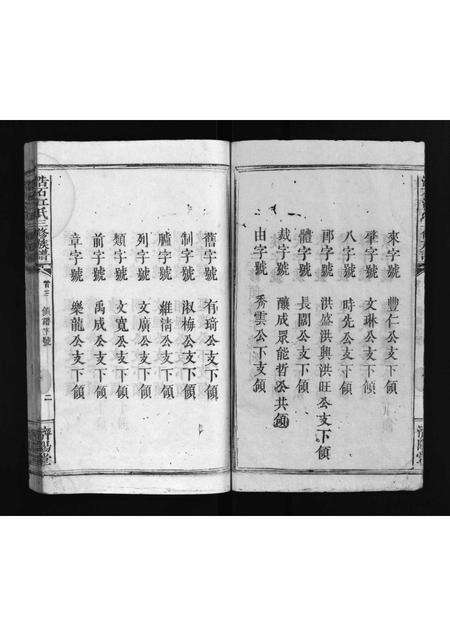 來字號 豐仁公支下領
肇字號 文琳公支下領
八字號 時先公支下領
郡字號 洪盛洪興洪旺公支下領
體字號 長闆公支下領
裁字號 釀成眾能哲公共領
由字號 秀雲公下支領
舊字號 有琦公支下領
制字號 淑梅公支下領
臚字號 維清公支下領
列字號 文廣公支下領
類字號 文寬公支下領
前字號 禹成公支下領
章字號 樂龍公支下領
江氏三修族譜
首三 領譜字號
二
濟陽堂